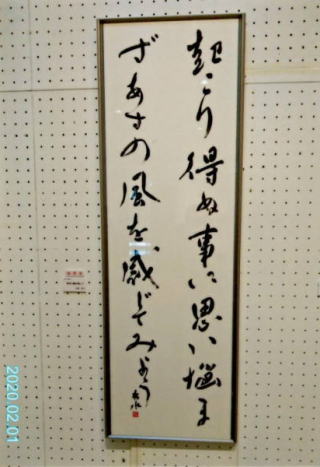 起こり得ぬ事に思い悩ま
ずあさの風を感じてみよう
2020.02.01